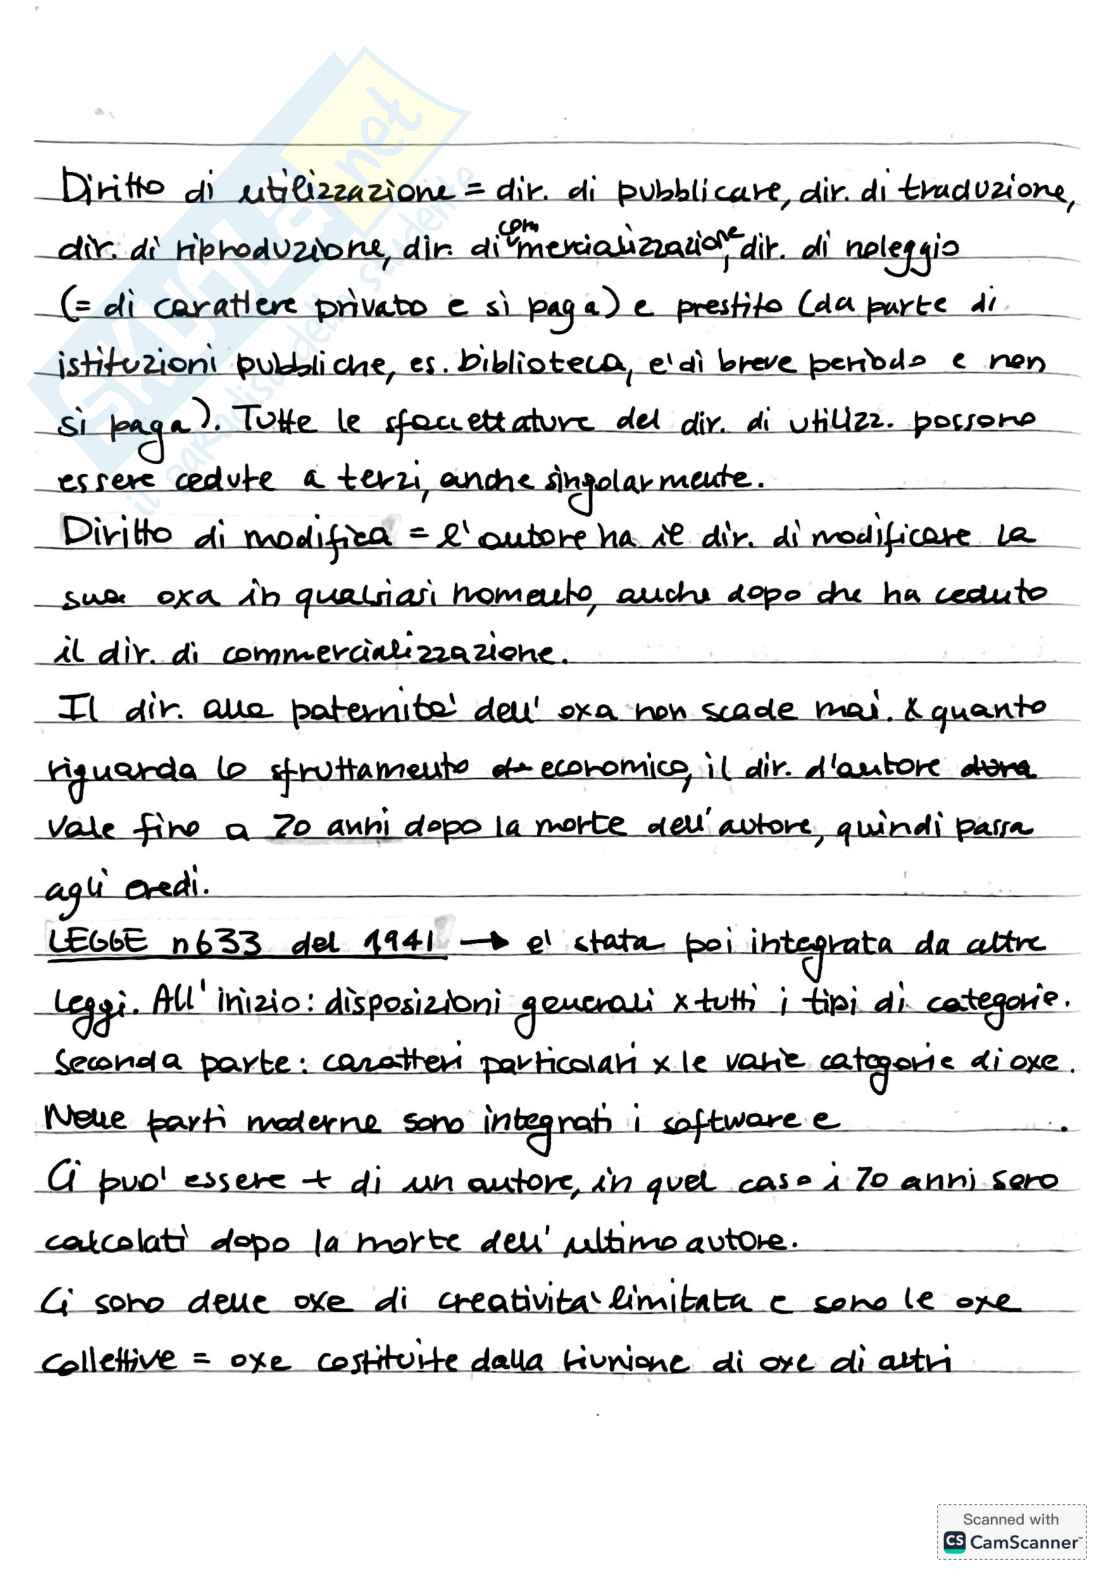 Diritto di utilizzazione = dir. di pubblicare, dir. di traduzione,
dir. di riproduzione, dir. di commercializzazione, dir. di noleggio
(= di carattere privato e si paga) e prestito (da parte di
istituzioni pubbliche, es. biblioteca, e' di breve periodo e non
si paga). Tutte le sfaccettature del dir. di utilizz. possono
essere cedute a terzi, anche singolarmente.
Diritto di modifica = l'autore ha il dir. di modificare la
sua oxa in qualsiasi momento, anche dopo che ha ceduto
il dir. di commercializzazione.
Il dir. alla paternita' dell' oxa non scade mai. x quanto
riguarda lo sfruttamento economico, il dir. d'autore dura
vale fino a 70 anni dopo la morte dell'autore, quindi passa
agli eredi.
LEGGE n633 del 1941 → e' stata poi integrata da altre
leggi. All'inizio: disposizioni generali x tutti i tipi di categorie.
Seconda parte: caratteri particolari x le varie categorie di oxe.
Nelle parti moderne sono integrati i software e .
Ci puo' essere + di un autore, in quel caso i 70 anni sono
calcolati dopo la morte dell' ultimo autore.
Ci sono delle oxe di creativita' limitata e sono le oxe
collettive = oxe costituite dalla riunione di oxe di altri
SKUOLA.net
il paradiso dello studente
Scanned with
CS CamScanner